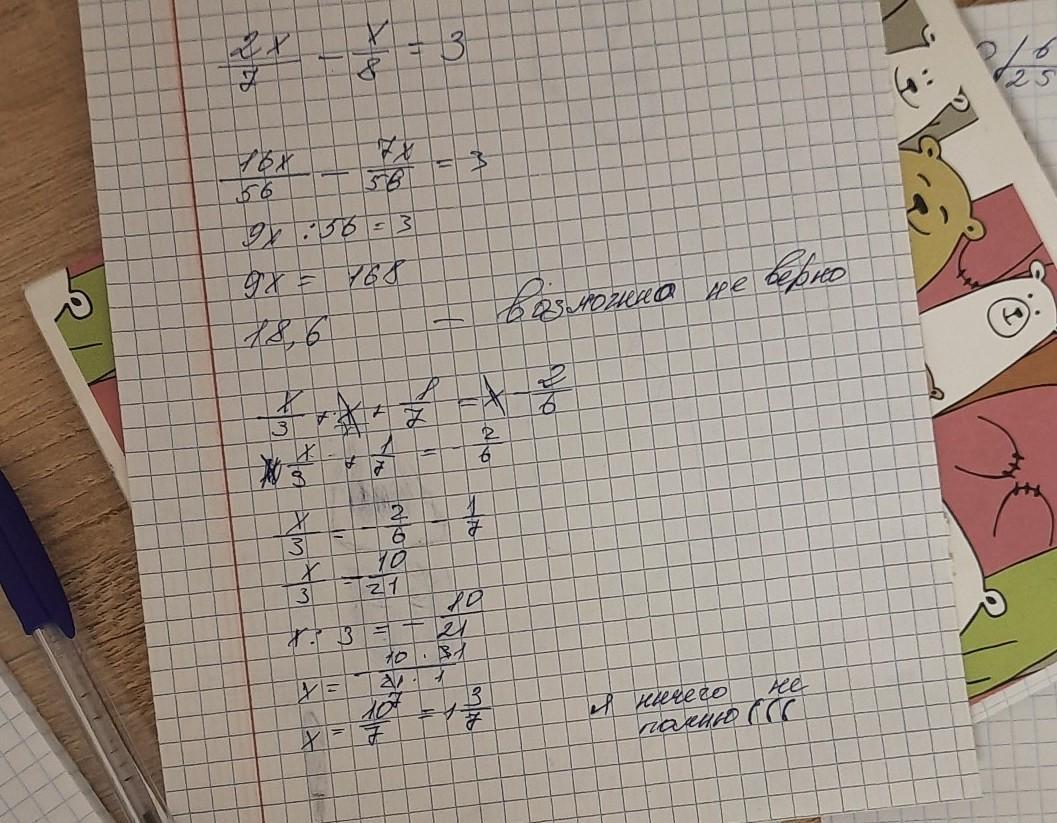 2x/7 - x/8 = 3
16x/56 - 7x/56 = 3
9x : 56 = 3
9x = 168
18,6 — возможна не верно
x/3 + + /7 = x - 2/6
x/3 + 1/7 = - 2/6
x/3 = - 2/6 - 1/7
x/3 = - 10/21
x : 3 = - 10/21
x = - 10 · 31/21 · 1
x = 10/7 = 1 3/7
я ничего не
помню (((
6
25